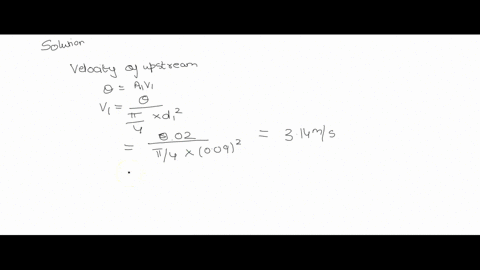 Solution
Velocity of upstream
Q = A₁V₁
V₁ = Q / (π/4 × d₁²)
= 0.02 / (π/4 × (0.09)²) = 3.14 m/s